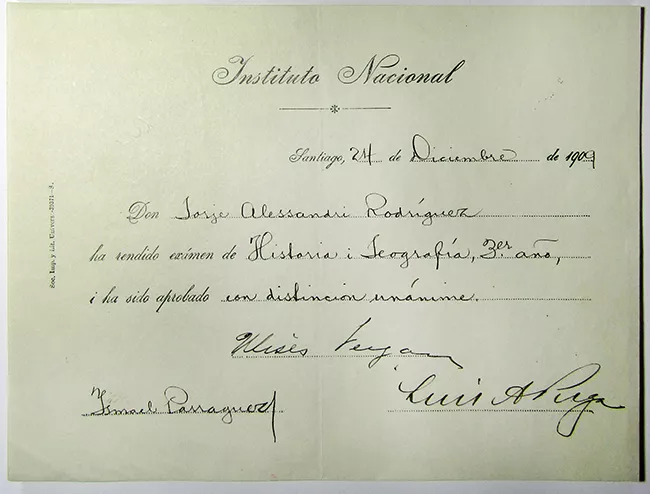 Instituto Nacional
Santiago, 24 de Diciembre de 1909
Don Jorje Alessandri Rodríguez
ha rendido exámen de Historia i Jeografía, 3er año,
i ha sido aprobado con distinción unánime.
Ulises Vergara
Ismael Parraguez
Luis A Puga
Soc. Imp. y Lit. Universo